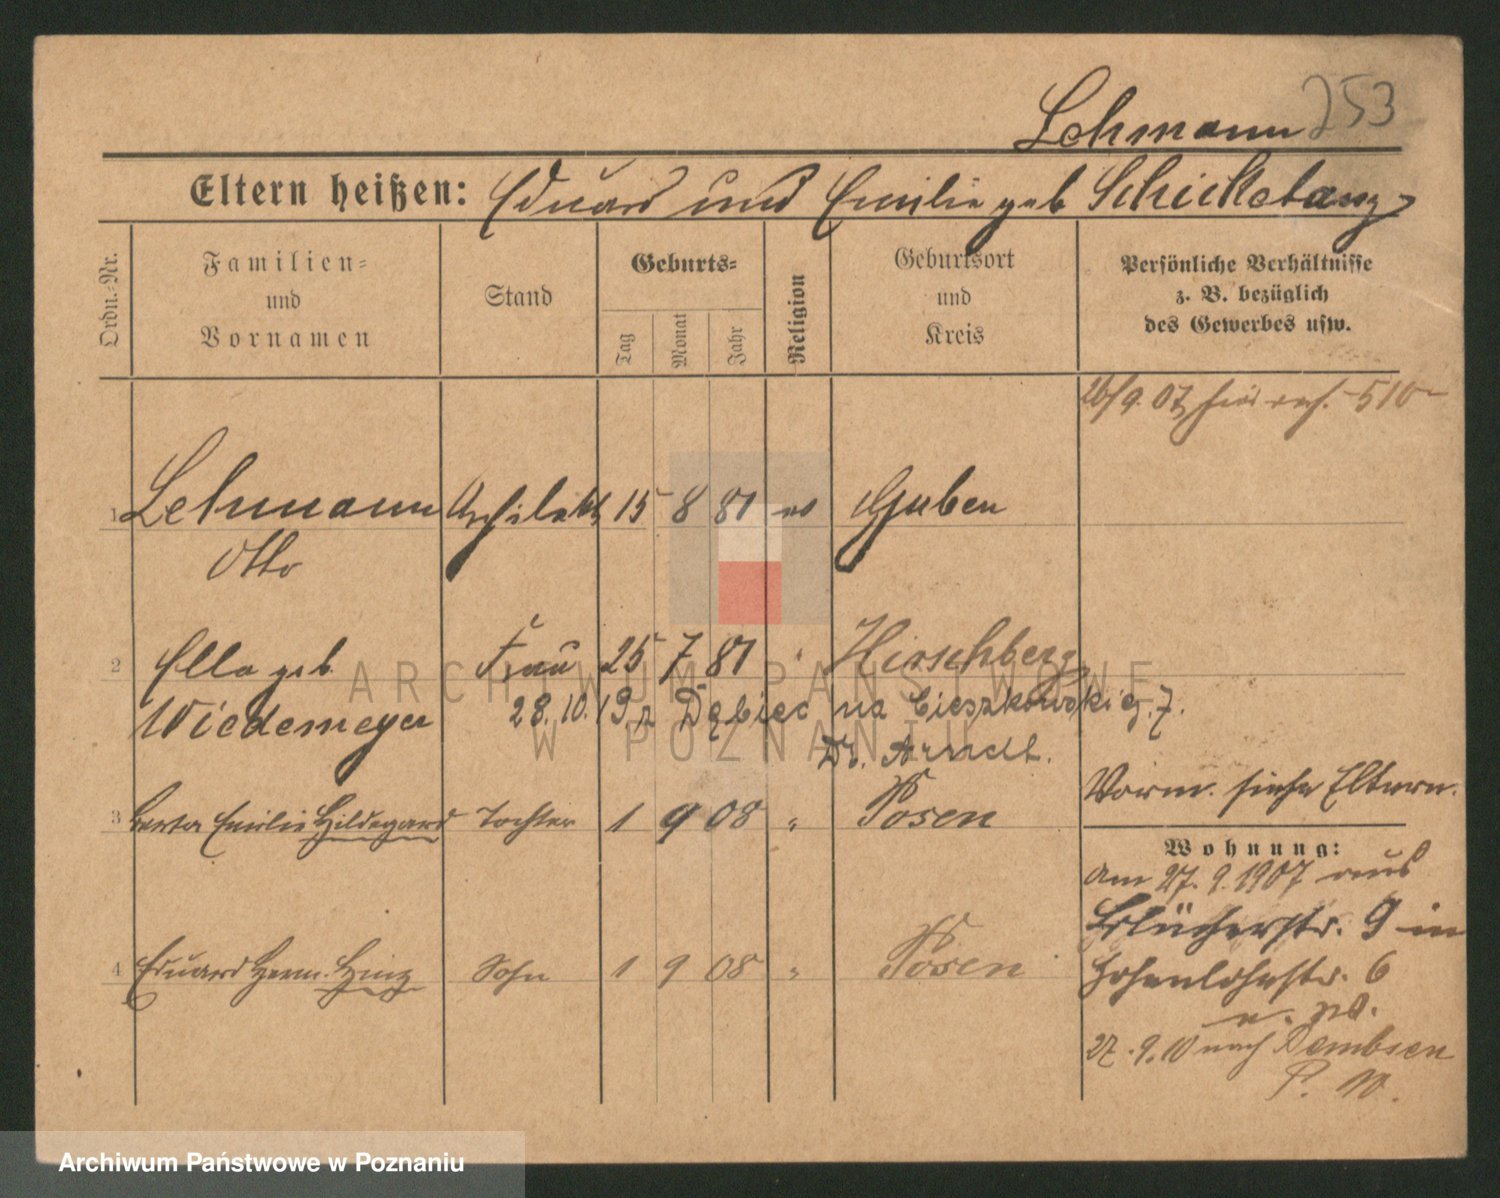 Lehmann 253
Eltern heißen: Eduard und Emilie geb Schicketanz
Ordn.=Nr.
Familien=
und
Vornamen
Stand
Geburts=
Tag
Monat
Jahr
Religion
Geburtsort
und
Kreis
Persönliche Verhältnisse
z. B. bezüglich
des Gewerbes usw.
26/9.07
510
1 Lehmann Architekt 15 8 81 ev Guben
Otto
2 Ella geb. Frau 25 7 81 " Hirschberg
Wiedemeyer 28.10.19 z Dębiec na Cieszkowskieg. 7.
Dr. Arndt.
Vorm. siehe Eltern.
3 Berta Emilie Hildegard Tochter 1 9 08 " Posen
Wohnung:
Am 27.9.1907 aus
Blücherstr. 9 in
Hohenlohestr. 6
4 Eduard Herm. Heinz Sohn 1 9 08 " Posen
27.9.10 nach Dembsen
ARCHIWUM PAŃSTWOWE
W POZNANIU
Archiwum Państwowe w Poznaniu